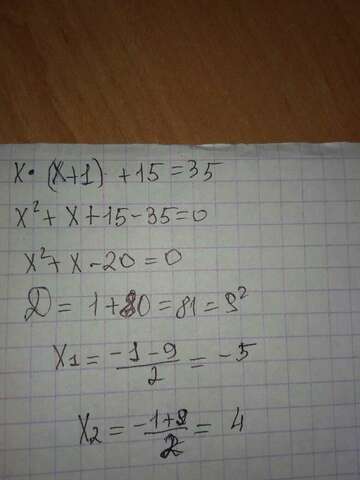 x · (x+1) + 15 = 35
x² + x + 15 - 35 = 0
x² + x - 20 = 0
D = 1 + 80 = 81 = 9²
x₁ = (-1 - 9)/2 = -5
x₂ = (-1 + 9)/2 = 4